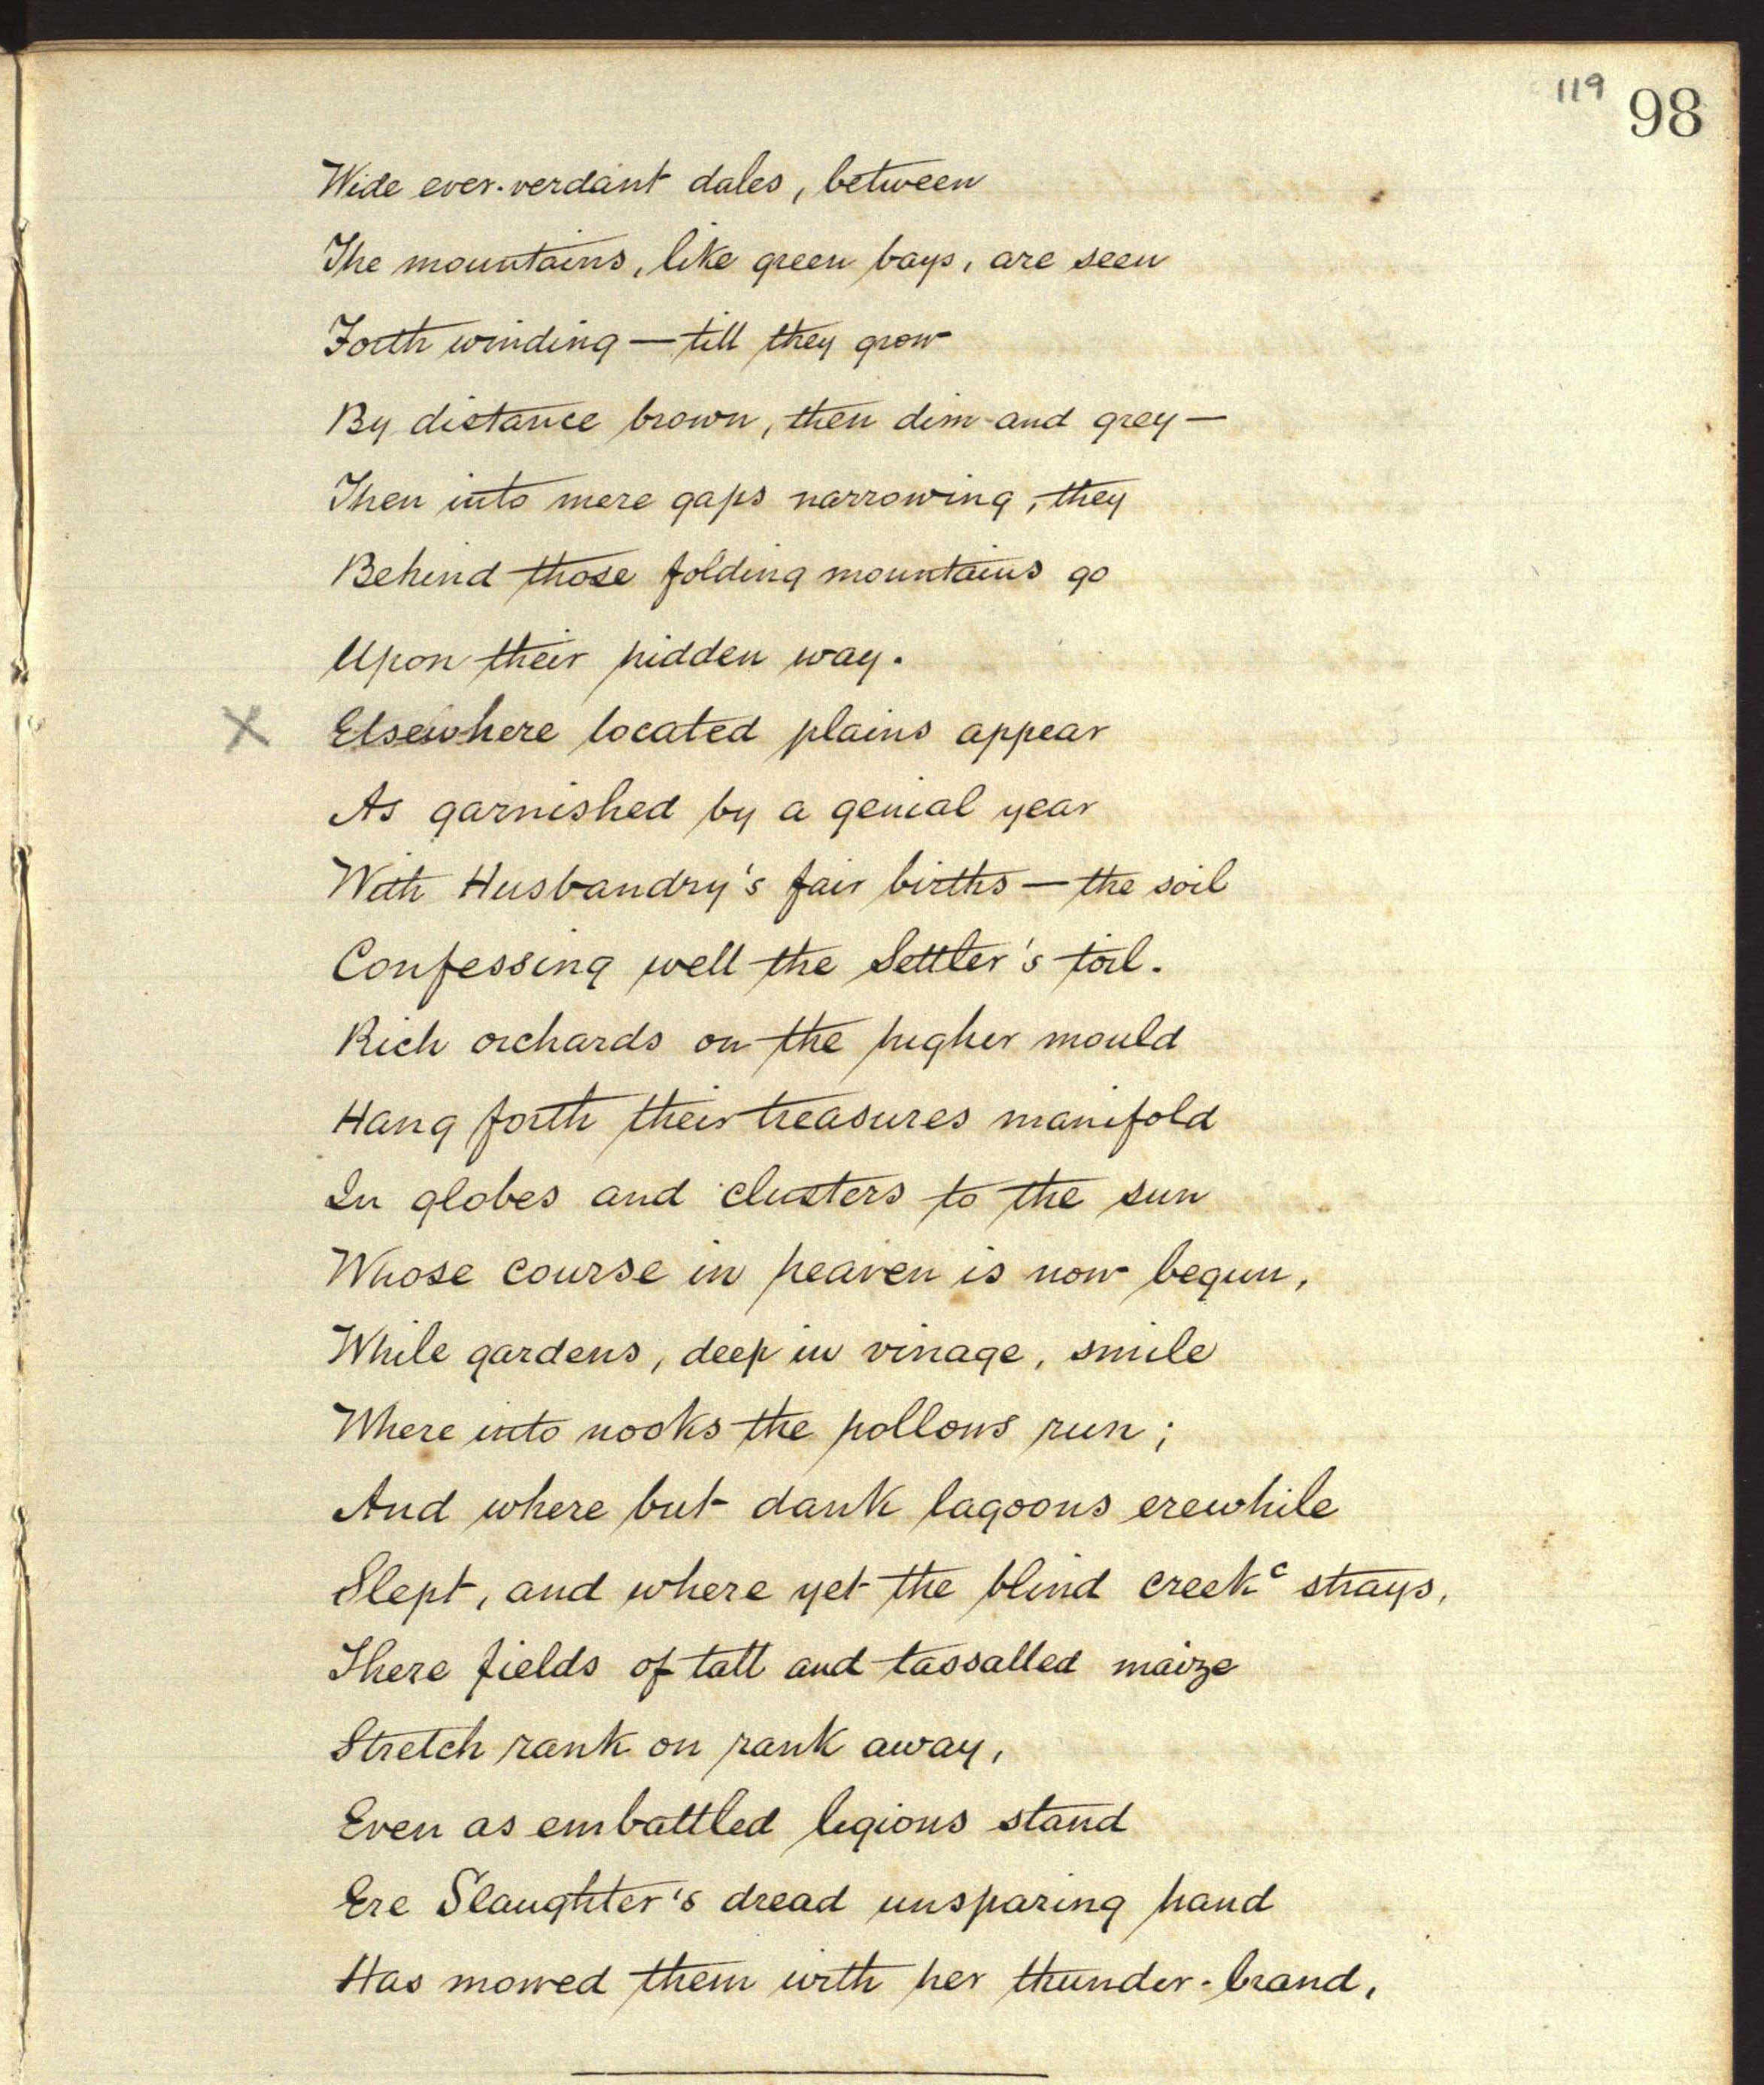 119 98
Wide ever-verdant dales, between
The mountains, like green bays, are seen
Forth winding — till they grow
By distance brown, then dim and grey —
Then into mere gaps narrowing, they
Behind those folding mountains go
Upon their hidden way.
X Elsewhere located plains appear
As garnished by a genial year
With Husbandry's fair births — the soil
Confessing well the Settler's toil.
Rich orchards on the higher mould
Hang forth their treasures manifold
In globes and clusters to the sun
Whose course in heaven is now begun,
While gardens, deep in vinage, smile
Where into nooks the hollows run;
And where but dank lagoons erewhile
Slept, and where yet the blind creek c strays,
There fields of tall and tassalled maize
Stretch rank on rank away,
Even as embattled legions stand
Ere Slaughter's dread unsparing hand
Has mowed them with her thunder-brand,